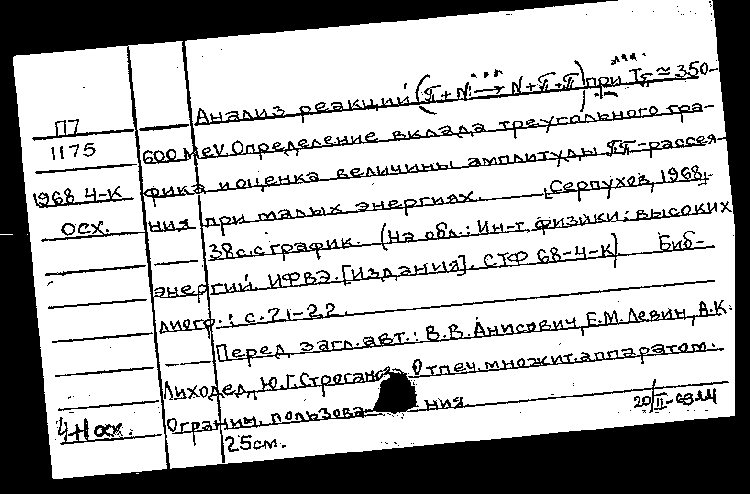 Анализ реакций (π+N → N+π+π) при Tπ ≃ 350-
П7
1175
600 MeV. Определение вклада треугольного гра-
1968 4-К
фика и оценка величины амплитуды ππ-рассея-
осх.
ния при малых энергиях. Серпухов, 1968.
38с. с график. (На обл.: Ин-т физики высоких
энергий. ИФВЭ. [Издания]. СТФ 68-4-К) Биб-
лиогр.: с. 21-22.
Перед загл. авт.: В.В. Анисович, Е.М. Левин, А.К.
Лиходед, Ю.Г. Строганов. Отпеч. множит. аппаратом.
Огранич. пользова- ния.
4-Н осх.
20/II-69
25см.